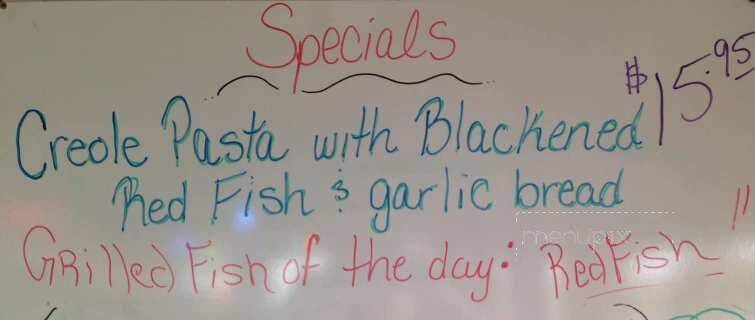 Specials
Creole Pasta with Blackened $15.95
Red Fish & garlic bread
Grilled Fish of the day: RedFish "
menupix